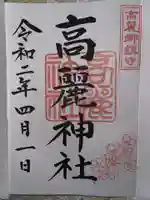 高麗神社
令和二年四月一日
高麗郷鎮守